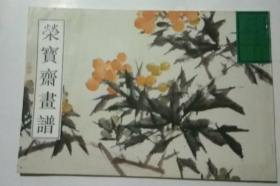 榮寶齋畫譜